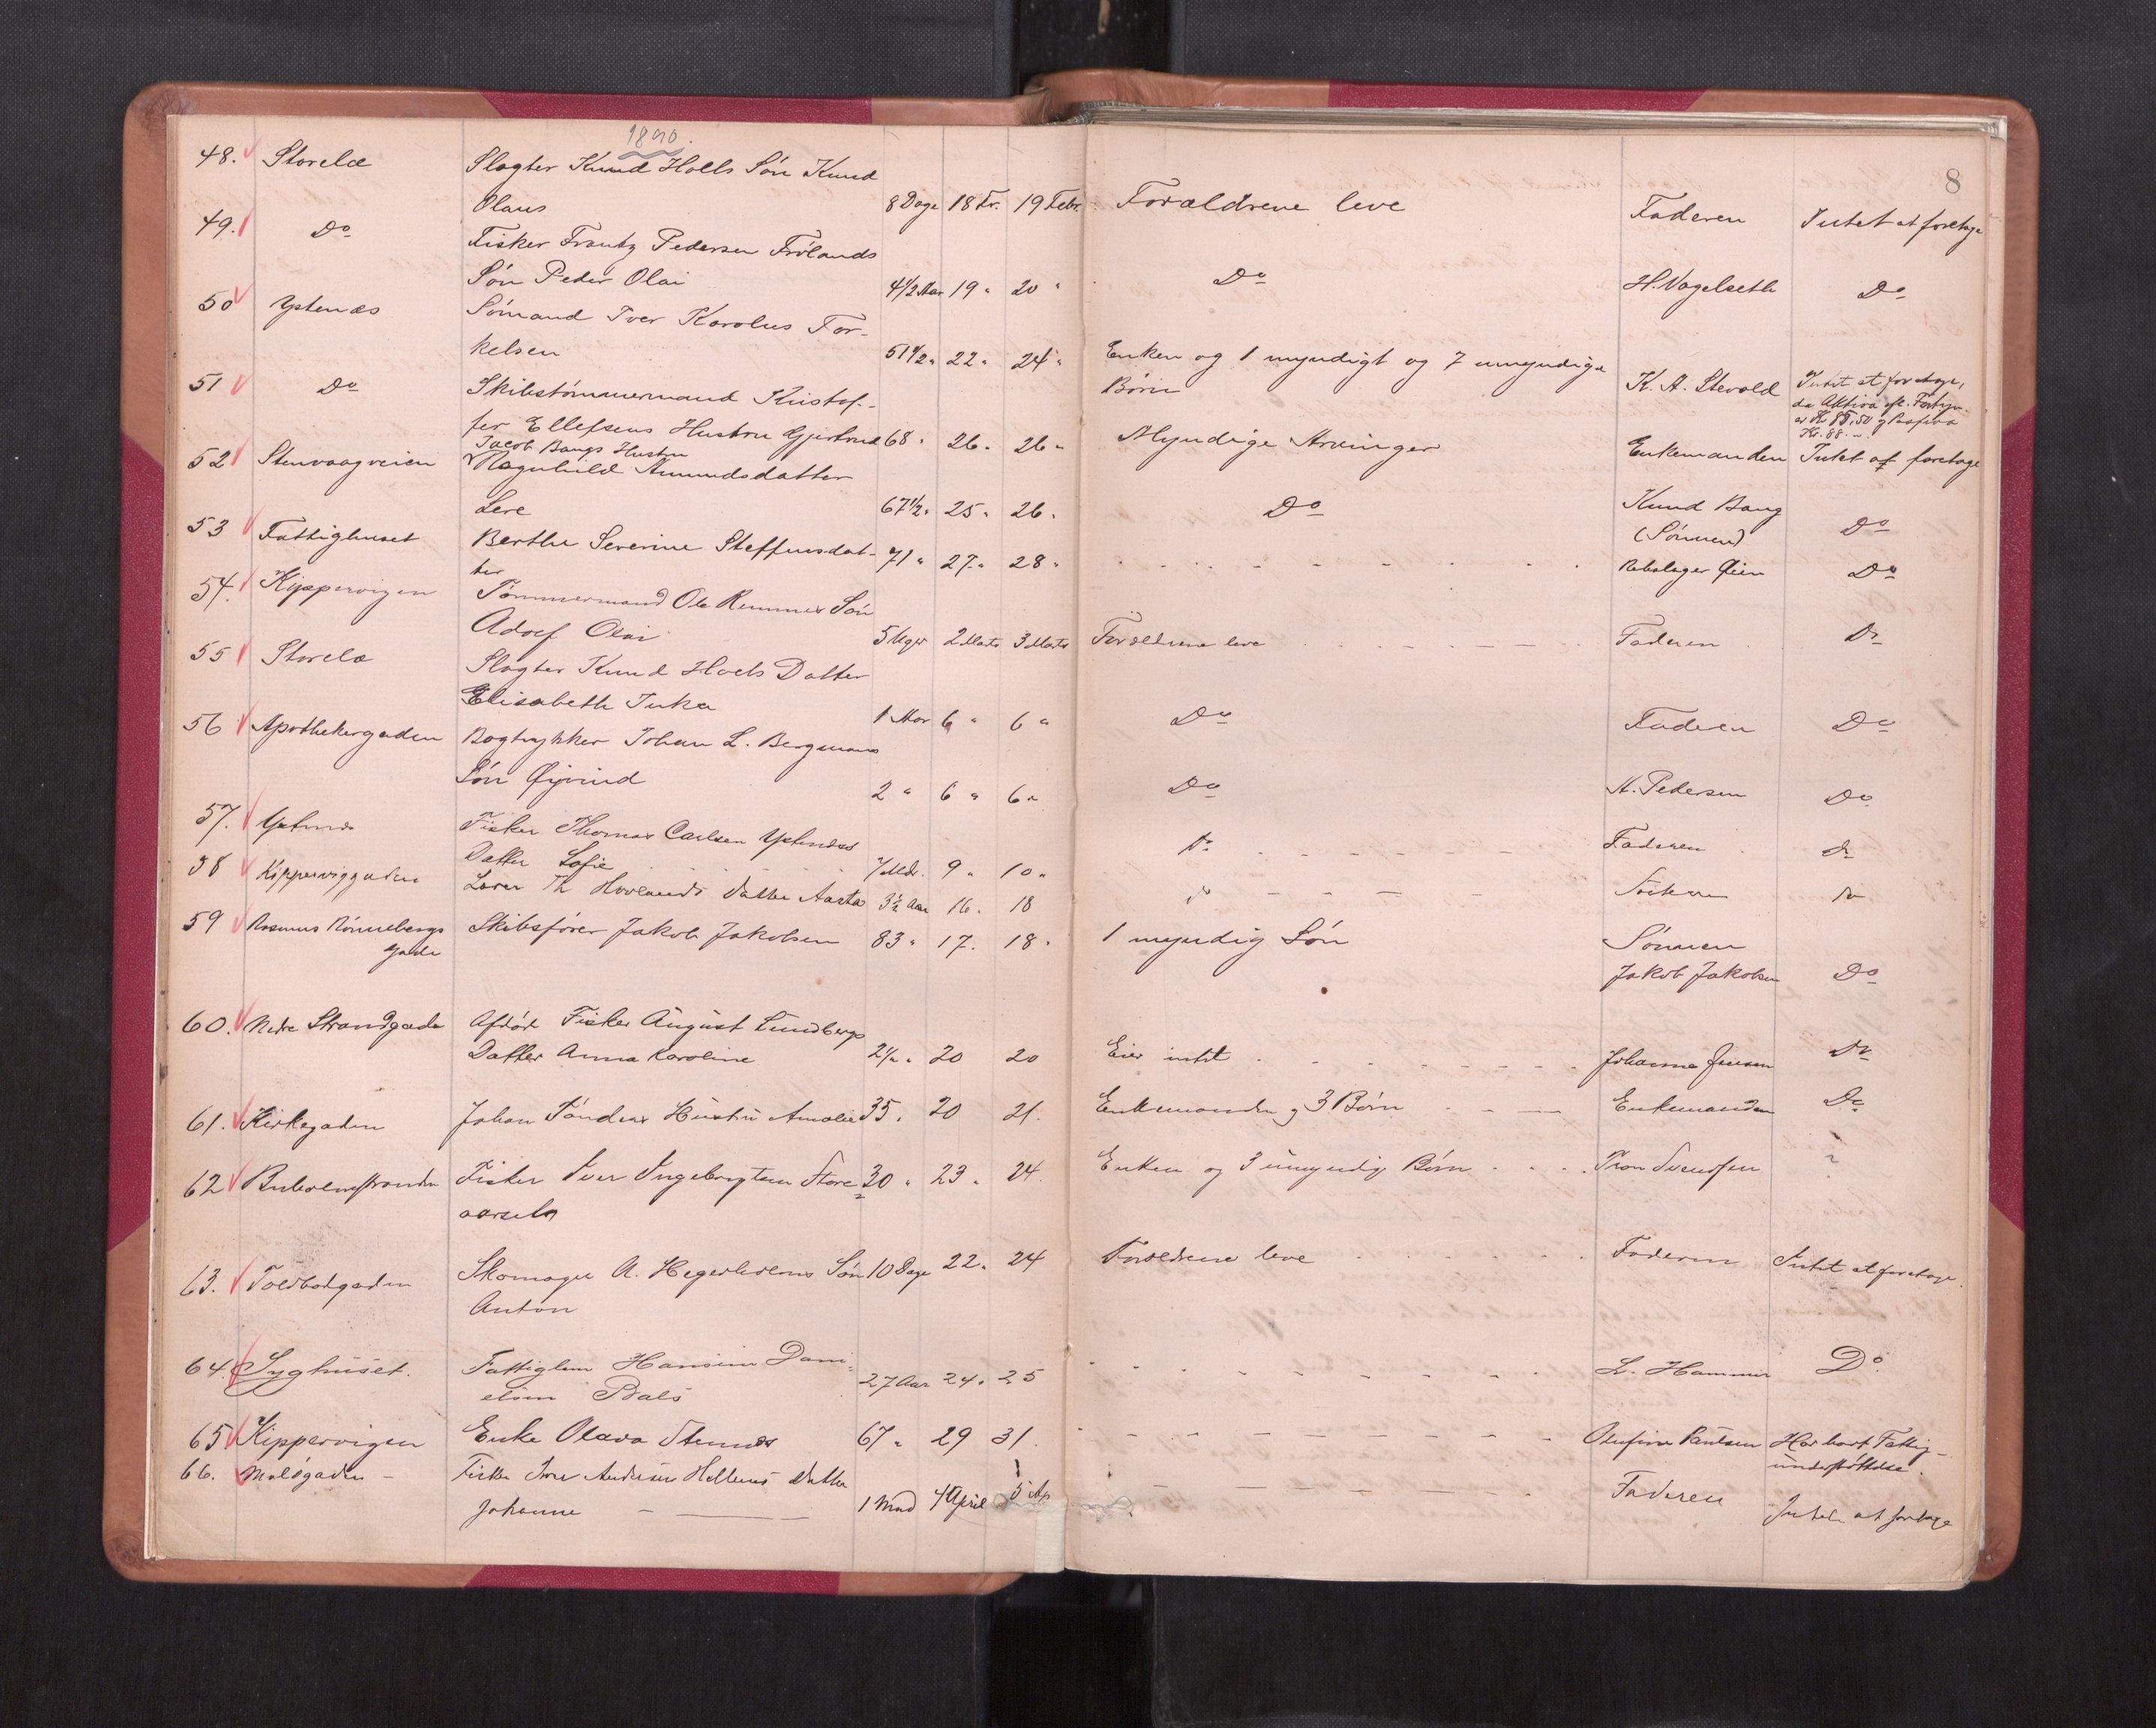 1890.
8
48. Storelæ Slagter Knud Holls Søn Knud
Olaus 8 Dage 18 Fr. 19 Febr. Forældrene leve Faderen Intet at foretage
49. Do Fisker Frantz Pedersen Frølands
Søn Peder Olai 4 1/2 Aar 19 " 20 " Do H. Vagelseth Do
50 Ystenæs Sømand Iver Karolus Tor-
kelsen 51 1/2 " 22 " 24 " Enken og 1 myndigt og 7 umyndige
Børn K. A. Stevold Intet at foretage,
da Aktiva
er Kr 85,50 og Passiva
Kr. 88
51 Do Skibstømmermand Kristof-
fer Ellefsens Hustru Gjertrud 68 " 26 " 26 " Myndige Arvinger Enkemanden Intet at foretage
52 Stenvaagveien Jacob Bangs Hustru
Ragnhild Amundsdatter
Lere 67 1/2 " 25 " 26 " Do Knud Bang
(Sønnen) Do
53 Fattighuset Berthe Severine Steffensdat-
ter 71 " 27 " 28 " Rebslager Øien Do
54. Kippervigen Tømmermand Ole Remmes Søn
Adolf Olai 5 Uger 2 Marts 3 Marts Forældrene leve Faderen Do
55 Storelæ Slagter Knud Hoels Datter
Elisabeth Inka 1 Aar 6 " 6 " Do Faderen Do
56 Apothekergaden Bogtrykker Johan L. Bergmans
Søn Øjvind 2 " 6 " 6 " Do A. Pedersen Do
57. Ystenæs Fisker Thomas Carlsen Ystenæs
Datter Sofie 7 Mdr. 9 " 10 " Do Faderen do
58 Kipperviggaden Lærer Th Hovlands datter Aasta 3 1/2 Aar 16. 18 do do
59 Rasmus Rønnebergs
gade Skibsfører Jakob Jakobsen 83 " 17. 18 " 1 myndig Søn Sønnen
Jakob Jakobsen Do
60. Nedre Strandgade Afdøde Fisker August Lundbergs
Datter Anna Karoline 2 1/2 " 20 20 Eier intet Johanna Jensen Do
61. Kirkegaden Johan Tønders Hustru Amalie 35 " 20 21. Enkemanden og 3 Børn Enkemanden Do
62 Fisker Iver Ingebrigtsen Store
30 " 23 " 24. Enken og 3 umyndige Børn Tron Svendsen ?
63. Toldbodgaden Skomager A. Hegerholms Søn 10 Dage 22 " 24 Forældrene leve Faderen Intet at foretage.
Anton
64. Syghuset. Fattiglem Hansine Dani-
elsen Bals 27 Aar 24 " 25 L. Hammer Do.
65 Kippervigen Enke Olava Stennæs 67 " 29 31. Olufine Paulsen Har havt Fattig-
understøttelse.
66. Moløgaden Fisker Andersen Hellems datter
Johanne 1 Mnd 4 April 5 Ap Faderen Intet at foretage